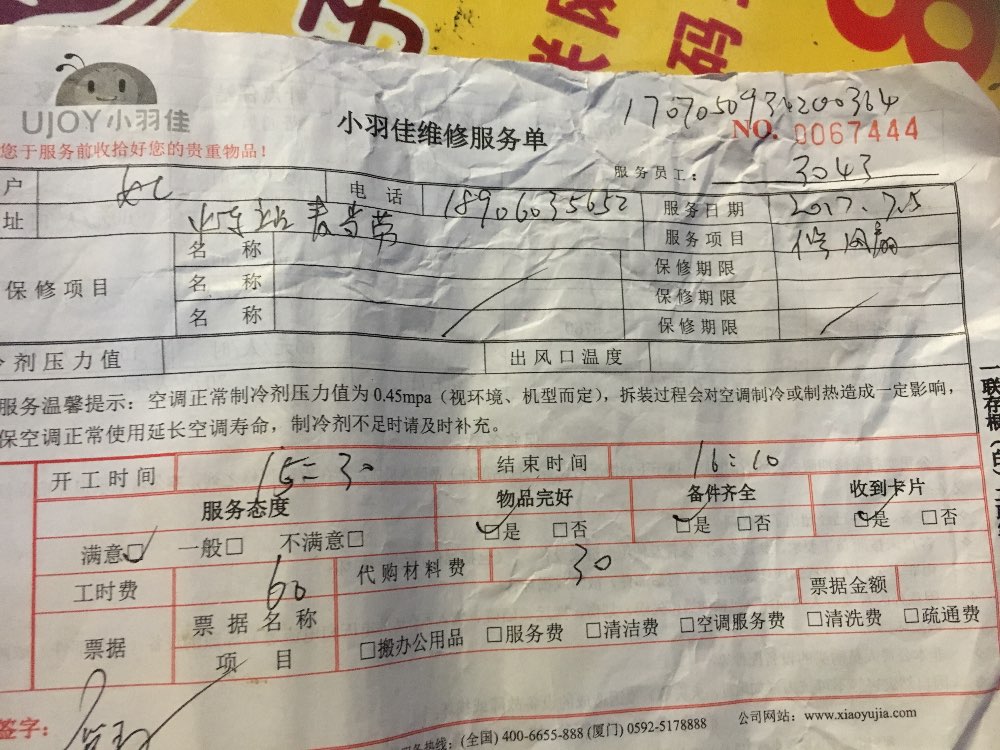 码
UJOY小羽佳
小羽佳维修服务单
1707050934200364
您于服务前收拾好您的贵重物品！
NO. 0067444
服务员工： 3043
户 电 话 18906035652 服务日期 2017.7.5
址 服务项目 修风扇
保修项目 名 称 保修期限
名 称 保修期限
名 称 保修期限
剂压力值 出风口温度
服务温馨提示：空调正常制冷剂压力值为 0.45mpa（视环境、机型而定），拆装过程会对空调制冷或制热造成一定影响，
保空调正常使用延长空调寿命，制冷剂不足时请及时补充。
一联存根（白）
开工时间 15:30 结束时间 16:10
服务态度 物品完好 备件齐全 收到卡片
满意☑ 一般□ 不满意□ ☑是 □否 ☑是 □否 ☑是 □否
工时费 60 代购材料费 30 票据金额
票据 票 据 名 称
项 目 □搬办公用品 □服务费 □清洁费 □空调服务费 □清洗费 □疏通费
签字：
服务热线：(全国) 400-6655-888 (厦门) 0592-5178888 公司网站：www.xiaoyujia.com